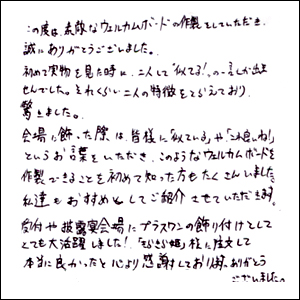 この度は、素敵なウェルカムボードの作製をしていただき、
誠にありがとうございました。
初めて実物を見た時に、二人して"似てる!"の一言しか出ま
せんでした。それくらい二人の特徴をとらえており、
驚きました。
会場に飾った際は、皆様に「似ている」や「これ良いね!」
というお言葉をいただき、このようなウェルカムボードを
作製できることを初めて知った方もたくさんいました。
私達もおすすめとしてご紹介させていただきます。
受付や披露宴会場にプラスワンの飾り付けとして
とても大活躍しました!「きらきら姫」様に注文して
本当に良かったと心より感謝しております。ありがとう
ございました。